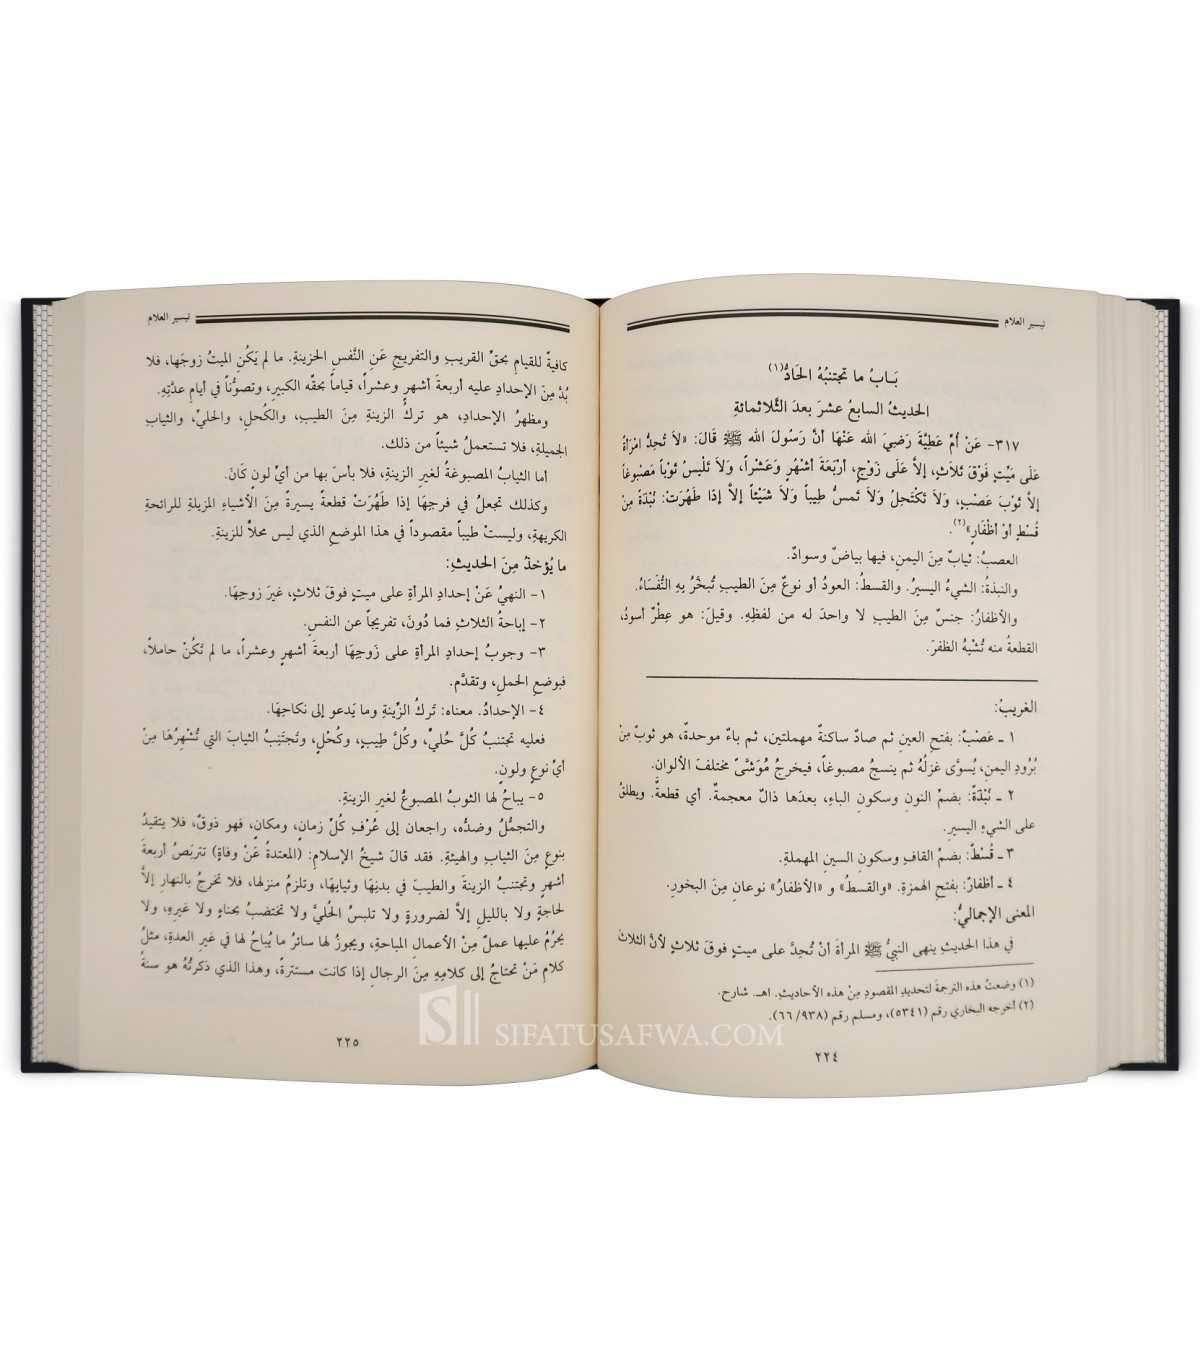 تيسير العلام
بَـابُ ما تجتنبُهُ الحَادُّ(١)
الحديثُ السابعُ عشرَ بعدَ الثَّلاثمائةِ
٣١٧- عَنْ أُمِّ عَطِيَّةَ رَضِيَ الله عَنْهَا أنَّ رَسُولَ الله ﷺ قَالَ: «لاَ تُحِدُّ امْرَأةٌ
عَلَى مَيِّتٍ فَوْقَ ثَلاَثٍ، إلاَّ عَلَى زَوْجٍ، أرْبَعَةَ أشْهُرٍ وَعَشْراً، وَلاَ تَلْبِسُ ثَوْباً مَصْبُوغاً
إلاَّ ثَوْبَ عَصْبٍ، وَلاَ تَكْتَحِلُ وَلاَ تَمسُّ طِيباً وَلاَ شَيْئاً إلاَّ إذَا طَهُرَتْ: نُبْذَةً مِنْ
قُسْطٍ أوْ أظْفَارٍ»(٢).
العصبُ: ثيابٌ مِنَ اليمنِ، فيها بياضٌ وسوادٌ.
والنبذةُ: الشيءُ اليسيرُ. والقسطُ: العودُ أو نوعٌ مِنَ الطيبِ تُبخَّرُ بِهِ النُّفَسَاءُ.
والأظفارُ: جنسٌ مِنَ الطيبِ لا واحدَ له من لفظِهِ. وقيلَ: هو عِطْرٌ أسودُ،
القطعةُ منه تُشْبِهُ الظفرَ.
الغريبُ:
١ ـ عَصْبٌ: بفتحِ العينِ ثم صادٌ ساكنةٌ مهملتين، ثم باءٌ موحدةٌ، هو ثوبٌ مِنْ
بُرُودِ اليمنِ، يُسوَّى غزلُهُ ثم ينسجُ مصبوغاً، فيخرجُ مُوَشَّىً مختلفَ الألوان.
٢ ـ نُبْذَةً: بضمِّ النونِ وسكونِ الباءِ، بعدَها ذالٌ معجمةٌ. أي قطعةً. ويطلقُ
على الشيءِ اليسيرِ.
٣ ـ قُسْطٌ: بضمِّ القافِ وسكونِ السينِ المهملةِ.
٤ ـ أظفارٌ: بفتحِ الهمزةِ. «والقسطُ» و «الأظفارُ» نوعانِ مِنَ البخورِ.
المعنى الإجماليُّ:
في هذا الحديثِ ينهى النبيُّ ﷺ المرأةَ أنْ تُحِدَّ على ميتٍ فوقَ ثلاثٍ لأنَّ الثلاثَ
(١) وضعتُ هذه الترجمةَ لتحديدِ المقصودِ مِنْ هذه الأحاديثِ. اهـ. شارح.
(٢) أخرجه البخاري رقم (٥٣٤١)، ومسلم رقم (٦٦/٩٣٨).
٢٢٤
تيسير العلام
كافيةٌ للقيامِ بحقِّ القريبِ والتفريجِ عَنِ النَّفسِ الحزينةِ. ما لم يَكُنِ الميتُ زوجَها، فلا
بُدَّ مِنَ الإحدادِ عليه أربعةَ أشهرٍ وعشراً، قياماً بحقِّه الكبيرِ، وتصوُّناً في أيامِ عدَّتِهِ.
ومظهرُ الإحدادِ، هو تركُ الزينةِ مِنَ الطيبِ، والكُحلِ، والحليِّ، والثيابِ
الجميلةِ، فلا تستعملُ شيئاً من ذلك.
أما الثيابُ المصبوغةُ لغيرِ الزينةِ، فلا بأسَ بها من أيِّ لونٍ كَانَ.
وكذلك تجعلُ في فرجِهَا إذا طَهُرَتْ قطعةً يسيرةً مِنَ الأشياءِ المزيلةِ للرائحةِ
الكريهةِ، وليستْ طيباً مقصوداً في هذا الموضعِ الذي ليس محلاً للزينةِ.
ما يُؤخذُ مِنَ الحديثِ:
١- النهيُ عَنْ إحدادِ المرأةِ على ميتٍ فوقَ ثلاثٍ، غيرَ زوجِهَا.
٢- إباحةُ الثلاثِ فما دُونَ، تفريجاً عن النفسِ.
٣- وجوبُ إحدادِ المرأةِ على زَوجِهَا أربعةَ أشهرٍ وعشراً، ما لم تَكُنْ حاملاً،
فبوضعِ الحملِ، وتقدَّم.
٤- الإحدادُ. معناه: تَركُ الزِّينةِ وما يَدعو إلى نكاحِهَا.
فعليه تجتنبُ كُلَّ حُليٍّ، وكُلَّ طِيبٍ، وكُحْلٍ، وتَجتَنِبُ الثيابَ التي تُشْهِرُهَا مِنْ
أيِّ نوعٍ ولونٍ.
٥- يباحُ لها الثوبُ المصبوغُ لغيرِ الزينةِ.
والتجمُّلُ وضدُّه، راجعان إلى عُرْفِ كُلِّ زمانٍ، ومكانٍ، فهو ذوقٌ، فلا يتقيدُ
بنوعٍ مِنَ الثيابِ والهيئةِ. فقد قالَ شيخُ الإسلامِ: (المعتدةُ عَنْ وفاةٍ) تتربَّصُ أربعةَ
أشهرٍ وتجتنبُ الزينةَ والطيبَ في بدنِهَا وثيابِهَا، وتلزمُ منزلها، فلا تخرجُ بالنهارِ إلاَّ
لحاجةٍ ولا بالليلِ إلاَّ لضرورةٍ ولا تلبسُ الحُليَّ ولا تختضبُ بحناءٍ ولا غيرِهِ، ولا
يحرُمُ عليها عملٌ مِنْ الأعمالِ المباحةِ، ويجوزُ لها سائرُ ما يُباحُ لها في غيرِ العدةِ، مثلُ
كلامِ مَنْ تحتاجُ إلى كلامِهِ مِنَ الرجالِ إذا كانت مستترةً، وهذا الذي ذكرتُهُ هو سنةُ
٢٢٥
SIFATUSAFWA.COM